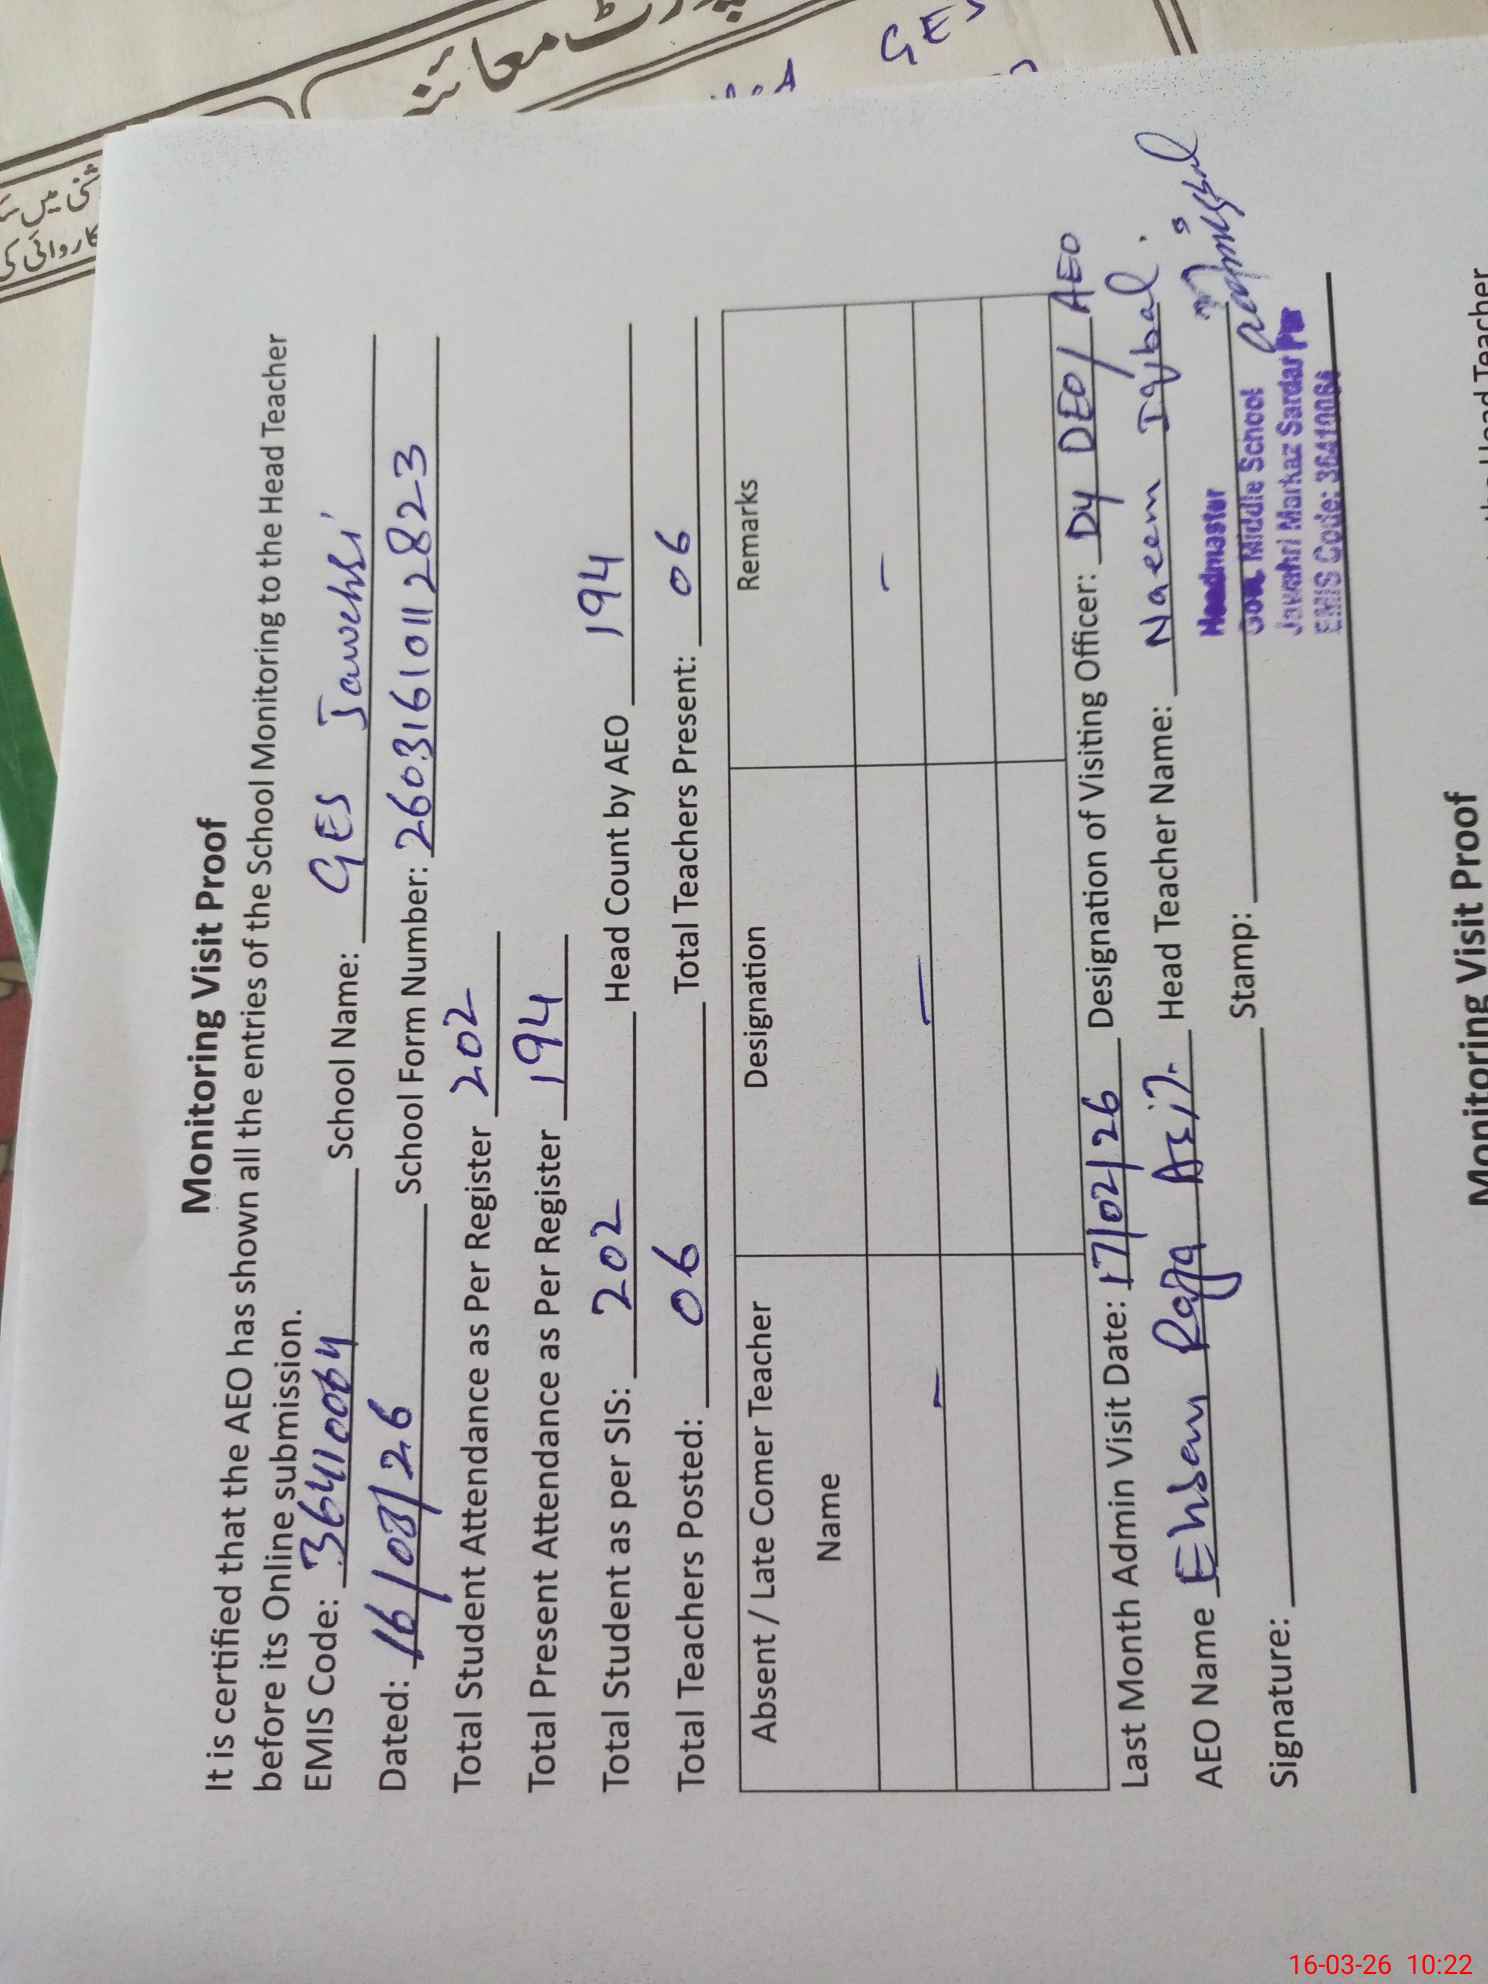 Monitoring Visit Proof
It is certified that the AEO has shown all the entries of the School Monitoring to the Head Teacher
before its Online submission.
EMIS Code: 36410064 School Name: GES Jawehri
Dated: 16/03/26 School Form Number: 26031610112823
Total Student Attendance as Per Register 202
Total Present Attendance as Per Register 194
Total Student as per SIS: 202 Head Count by AEO 194
Total Teachers Posted: 06 Total Teachers Present: 06
Absent / Late Comer Teacher Name Designation Remarks
– – –
Last Month Admin Visit Date: 17/02/26 Designation of Visiting Officer: Dy DEO/AEO
AEO Name Ehsan Raffa Asif Head Teacher Name: Naeem Iqbal.
Signature: Stamp:
Headmaster
Govt. Middle School
Jawahri Markaz Sardar Pur
EMIS Code: 36410064
Monitoring Visit Proof
the Head Teacher
معائنہ
GES
16-03-26 10:22